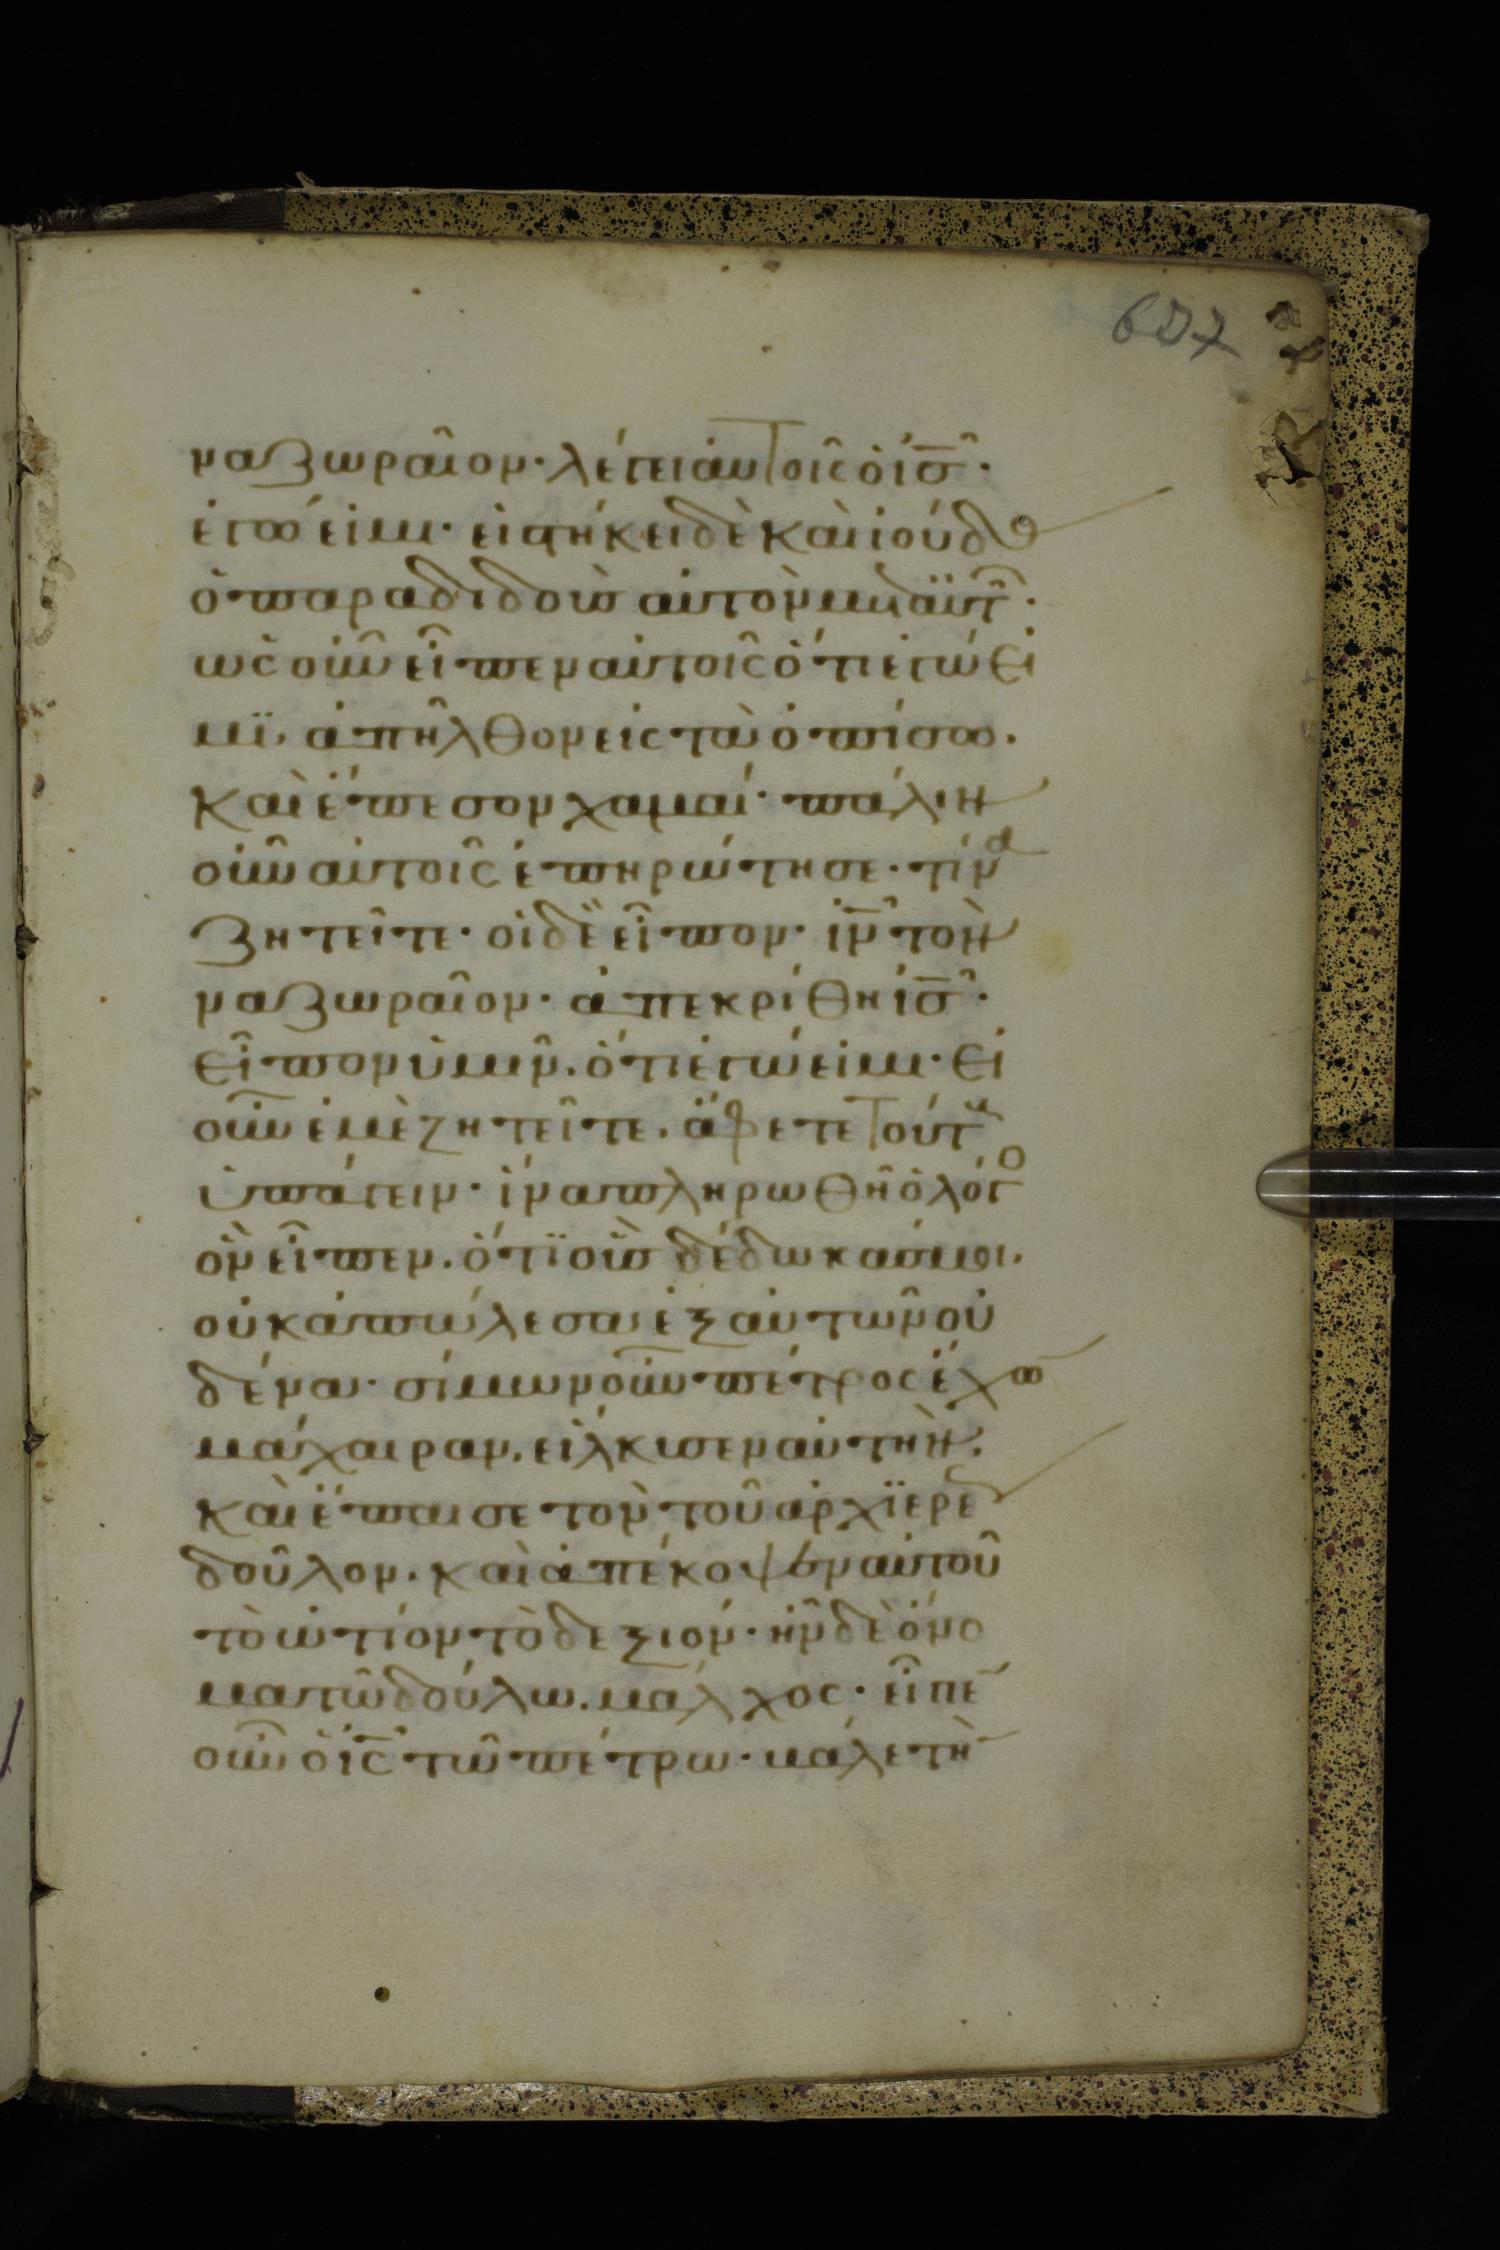 607
ναζωραῖον· λέγει αὐτοῖς ὁ ις·
ἐγώ εἰμι· εἱστήκει δὲ καὶ ἰούδ
ὁ παραδιδοὺς αὐτὸν μετ αὐτ·
ὡς οὖν εἶπεν αὐτοῖς ὅτι ἐγώ εἰ
μϊ, ἀπῆλθον εἰς τὰ ὀπίσω.
καὶ ἔπεσον χαμαί· πάλιν
οὖν αὐτοῖς ἐπηρώτησε· τίνα
ζητεῖτε· οἱ δὲ εἶπον· ιν τὸν
ναζωραῖον· ἀπεκρίθη ις·
εἶπον ὑμῖν. ὅτι ἐγώ εἰμι· εἰ
οὖν ἐμὲ ζητεῖτε. ἄφετε τούτ
ὑπάγειν· ἵνα πληρωθῆ ὁ λόγο
ὃν εἶπεν. ὅτϊ οὓς δέδωκάς μοι.
οὐκ ἀπώλεσα ἐξ αὐτῶν οὐ
δένα· σίμων οὖν πέτρος ἔχω
μάχαιραν. εἵλκυσεν αὐτὴν.
καὶ ἔπαισε τὸν τοῦ ἀρχϊερε
δοῦλον. καὶ ἀπέκοψεν αὐτοῦ
τὸ ὠτίον τὸ δεξιόν· ἦν δὲ ὄνο
μα τῶ δούλω. μάλχος· εἶπε
οὖν ὁ ις τῶ πέτρω· μάλε τὴ